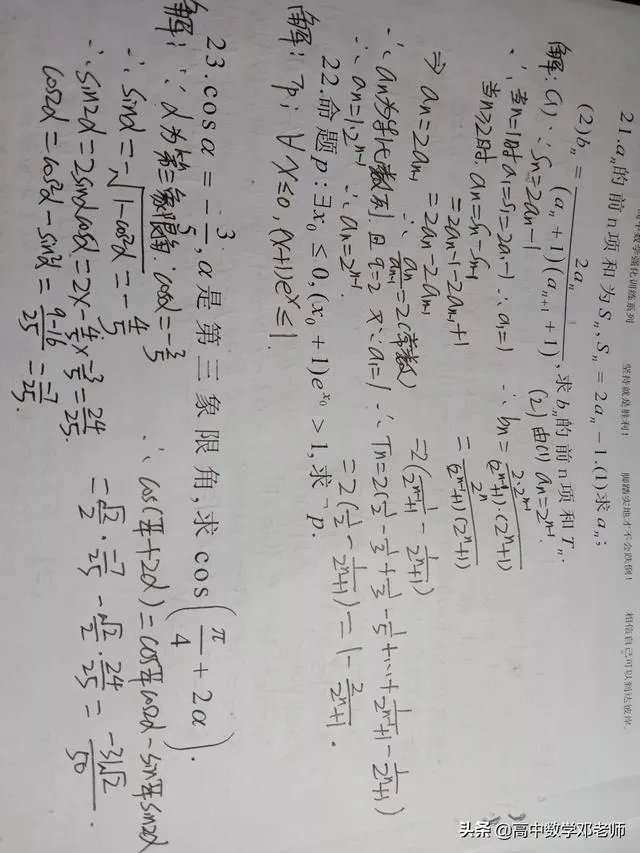 高中数学强化训练系列 坚持就是胜利! 脚踏实地才不会跌倒! 相信自己可以到达彼岸.
21.aₙ的前n项和为Sₙ,Sₙ=2aₙ-1.(1)求aₙ;
(2)bₙ=2aₙ/((aₙ+1)(aₙ₊₁+1)),求bₙ的前n项和Tₙ.
解:(1)∵Sn=2an-1
∴当n=1时a₁=S₁=2a₁-1∴a₁=1
当n≥2时 an=Sn-Sn-1
=2an-1-2an-1+1
=2an-2an-1
⇒an=2an-1 ∴an/an-1=2(常数)
∴an为等比数列,且q=2 又∵a₁=1
∴an=1·2ⁿ⁻¹ ∴an=2ⁿ⁻¹.
(2)由(1)an=2ⁿ⁻¹
∴bn=2·2ⁿ⁻¹/((2ⁿ⁻¹+1)·(2ⁿ+1))
=2ⁿ/((2ⁿ⁻¹+1)(2ⁿ+1))
=2(1/(2ⁿ⁻¹+1)-1/(2ⁿ+1))
∴Tn=2(1/2-1/3+1/3-1/5+…+1/(2ⁿ⁻¹+1)-1/(2ⁿ+1))
=2(1/2-1/(2ⁿ+1))=1-2/(2ⁿ+1).
22.命题p:∃x₀≤0,(x₀+1)eˣ⁰>1,求¬p.
解:¬p:∀x≤0,(x+1)eˣ≤1.
23.cosα=-3/5,α是第三象限角,求cos(π/4+2α).
解:∵α为第三象限角,cosα=-3/5
∴sinα=-√(1-cos²α)=-4/5
∴sin2α=2sinαcosα=2×-4/5×-3/5=24/25.
cos2α=cos²α-sin²α=(9-16)/25=-7/25.
∴cos(π/4+2α)=cosπ/4cos2α-sinπ/4sin2α
=√2/2·-7/25-√2/2·24/25=-31√2/50.
头条@高中数学邓老师